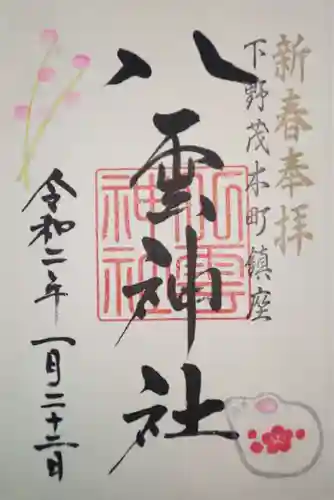 新春奉拝
下野茂木町鎮座
八雲神社
八雲神社
令和二年 一月二十二日